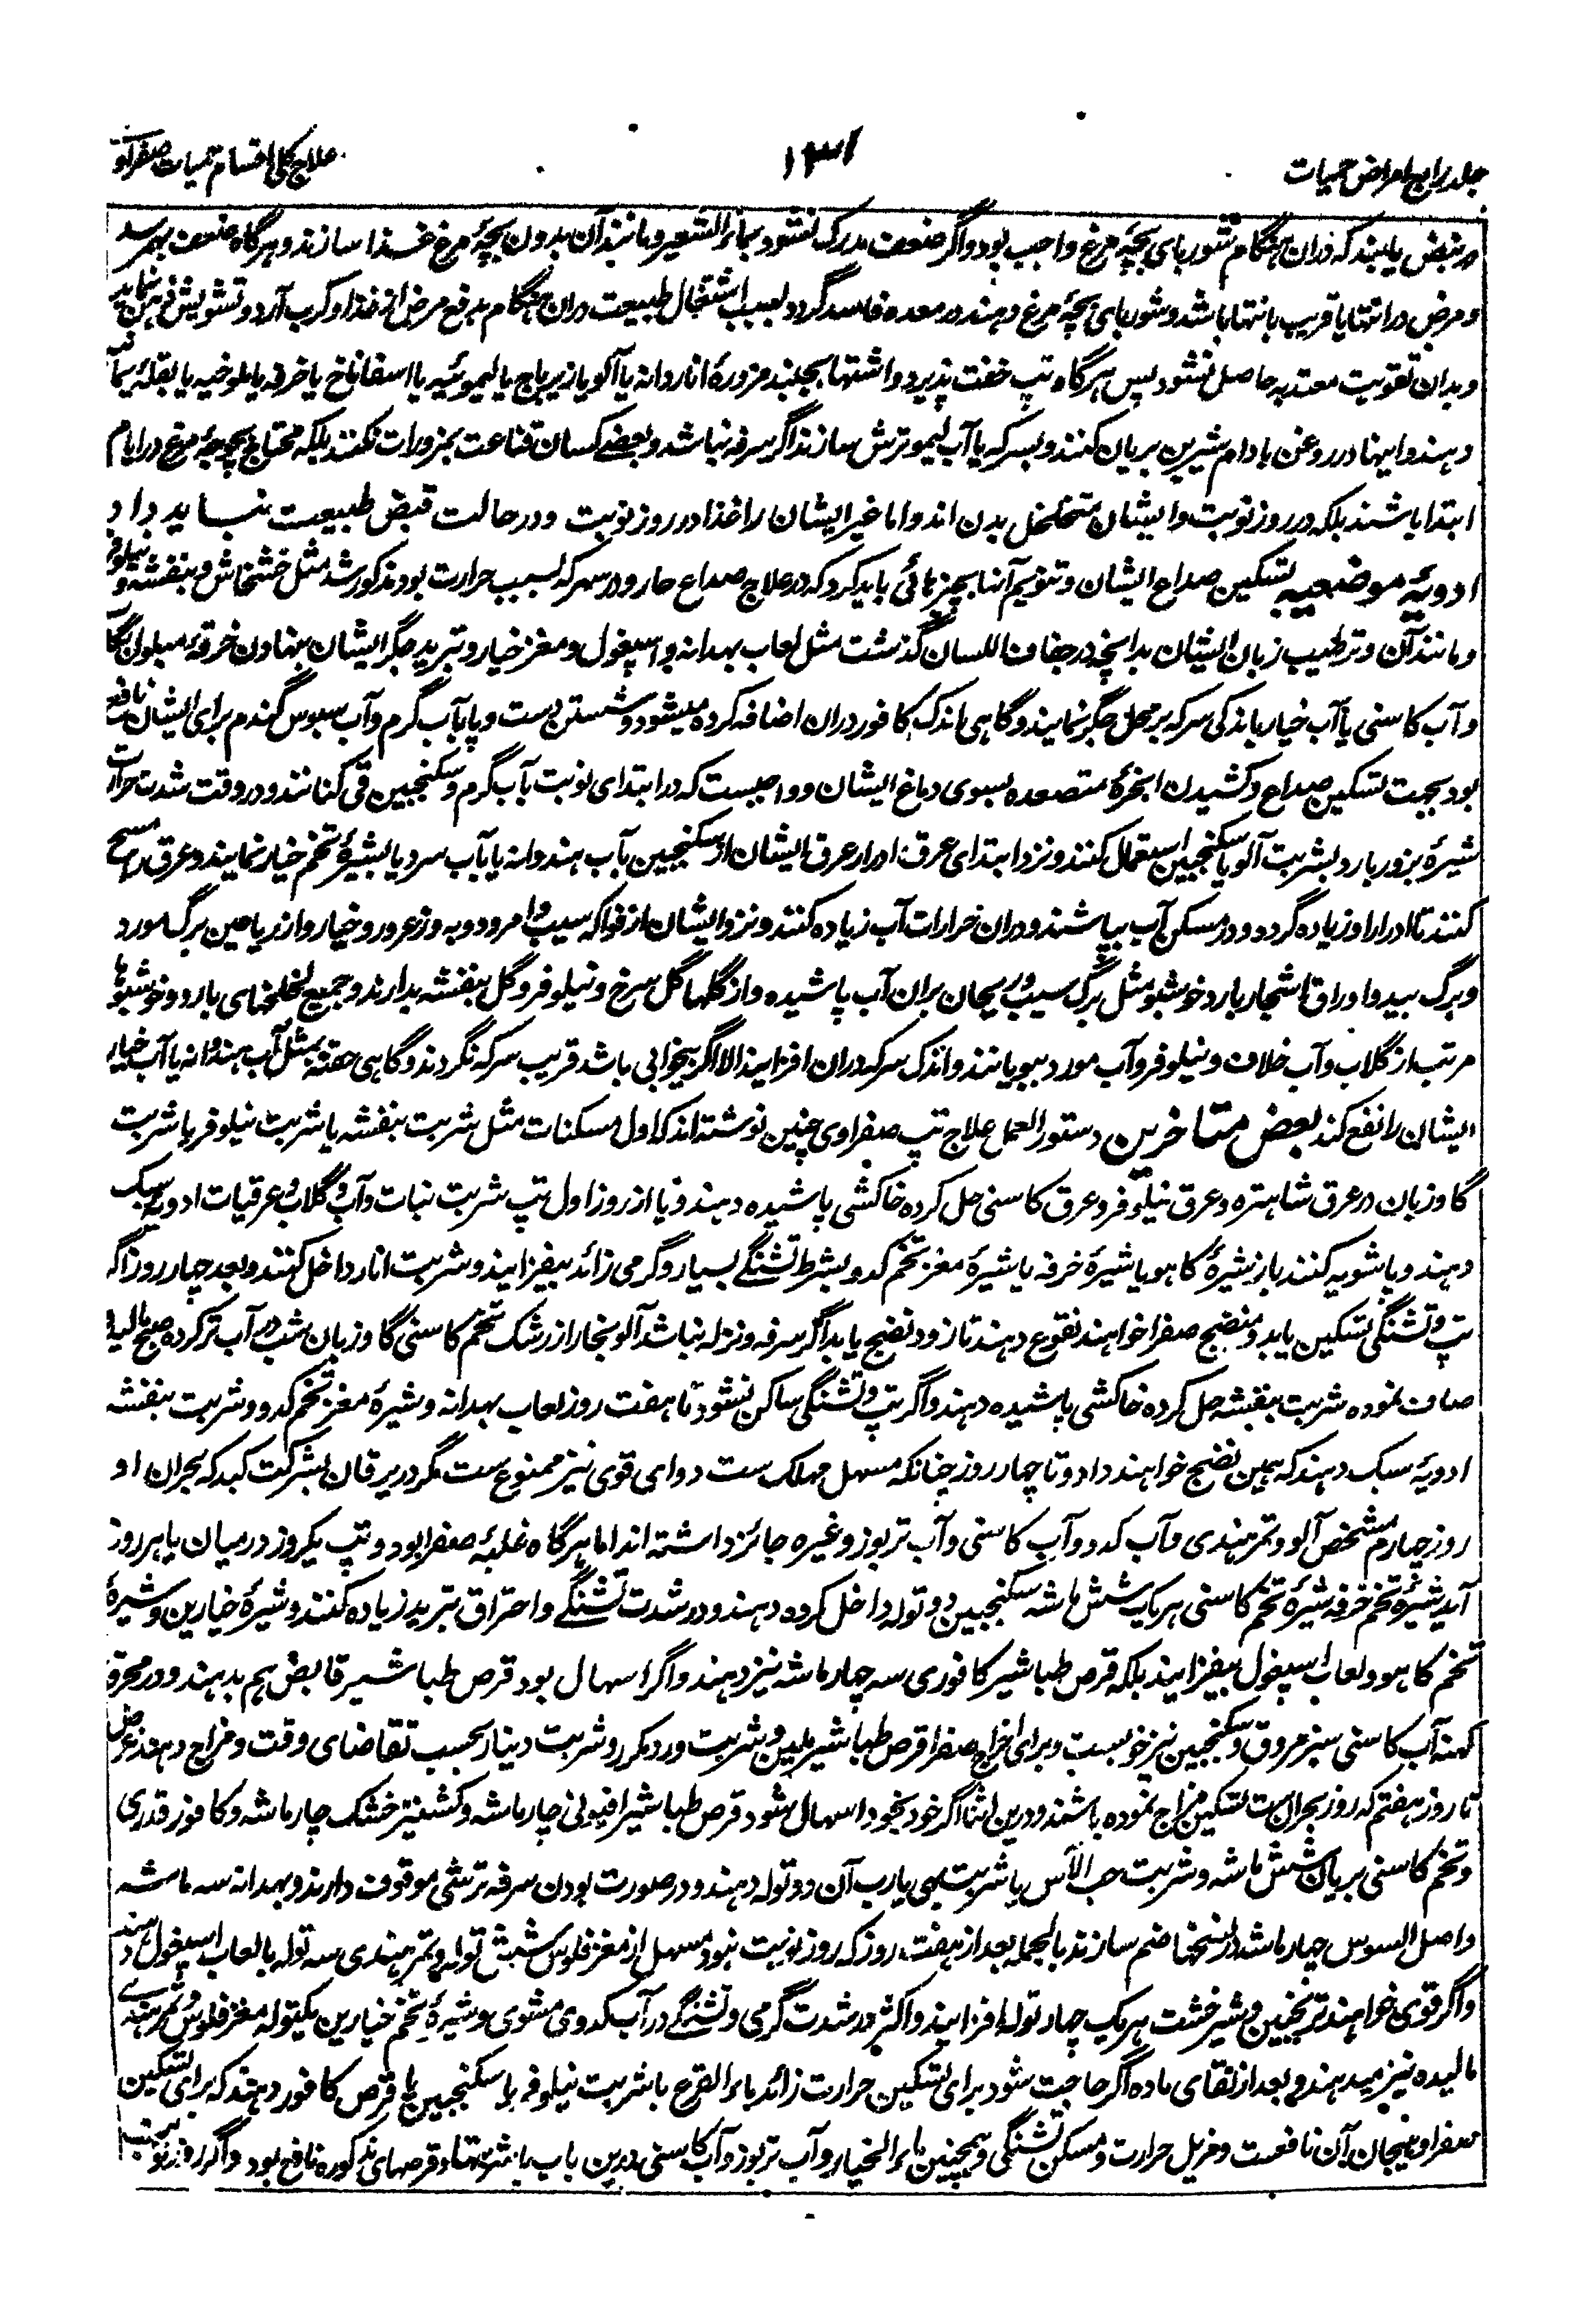 جلد رابع امراض حمیات
۱۳۱
علاج کلی اقسام حمیات صفراوی
در نبض یابند که دران هنگام شوربای بچهٔ مرغ واجب بود و اگر ضعف مدرک نشود بماء الشعیر و مانند آن بدون بچهٔ مرغ غذا سازند و هرگاه ضعف بهم رسد
و مرض در انتها یا قریب بانتها باشد و شوربای بچهٔ مرغ دهند در معده فاسد گردد بسبب اشتغال طبیعت دران هنگام بدفع مرض از غذا و کرب آرد و تشویش ذهن نماید
و بدان تقویت معتد به حاصل نشود پس هرگاه تپ خفت پذیرد و اشتها بجنبد مزورهٔ اناردانه یا آلو یا زیرباج یا لیموئیه یا اسفاناخ یا خرفه یا ملوخیه یا بقلهٔ یمانیه
دهند و اینها در روغن بادام شیرین بریان کنند و بسرکه یا آب لیمو ترش سازند اگر سرفه نباشد و بعضے کسان قناعت بمزورات نکنند بلکه محتاج بچوجهٔ مرغ در ایام
ابتدا باشند بلکه در روز نوبت و ایشان متخلخل بدن اند و اما غیر ایشان را غذا در روز نوبت و در حالت قبض طبیعت نباید داد
ادویهٔ موضعیه تسکین صداع ایشان و تنویم آنها بچیزهائی باید کرد که در علاج صداع حار و در سهر که بسبب حرارت بود مذکور شد مثل خشخاش و بنفشه و نیلوفر
و مانند آن و ترطیب زبان ایشان بدانچه در جفاف اللسان گذشت مثل لعاب بهدانه و اسپغول و مغز خیار و تبرید جگر ایشان بنهادن خرقهٔ مبلول بگلاب
و آب کاسنی یا آب خیار باندکی سرکه بر محل جگر نمایند و گاهی اندک کافور دران اضافه کرده میشود و شستن دست و پا بآب گرم و آب سبوس گندم برای ایشان نافع
بود بجهت تسکین صداع و کشیدن ابخرهٔ متصعده بسوی دماغ ایشان و واجبست که در ابتدای نوبت بآب گرم و سکنجبین قی کنانند و در وقت شدت حرارت
شیرهٔ بزور بارد بشربت آلو یا سکنجبین استعمال کنند و نزد ابتدای عرق ادرار عرق ایشان از سکنجبین بآب هندوانه یا بآب سرد یا بشیرهٔ تخم خیار نمایند و عرق را مسح
کنند تا ادرار او زیاده گردد و در مسکن آب بپاشند و دران خرارات آب زیاده کنند و نزد ایشان از فواکه سیب و امرود و به و زعرور و خیار و از ریاحین برگ مورد
و برگ بید و اوراق اشجار بارد خوشبو مثل برگ سیب و ریحان بران آب پاشیده و از گلها گل سرخ و نیلوفر و گل بنفشه بدارند و جمیع لخلخهای بارد و خوشبوها
مرتب از گلاب و آب خلاف و نیلوفر و آب مورد ببویانند و اندک سرکه دران افزایند الا اگر بیخوابی باشد قریب سرکه نگردند و گاهی حقنه بمثل آب هندوانه یا آب خیار
ایشان را نفع کند بعض متاخرین دستور العمل علاج تپ صفراوی چنین نوشته اند که اول مسکنات مثل شربت بنفشه یا شربت نیلوفر یا شربت
گاوزبان در عرق شاهتره و عرق نیلوفر و عرق کاسنی حل کرده خاکشی پاشیده دهند و یا از روز اول تپ شربت نبات و آب و گلاب و عرقیات ادویهٔ سبک
دهند و پاشویه کنند باز شیرهٔ کاهو یا شیرهٔ خرفه یا شیرهٔ مغز تخم کدو بشرط تشنگے بسیار و گرمی زائد بیفزایند و شربت انار داخل کنند و بعد چهار روز اگر
تپ و تشنگی تسکین یابد و منضج صفرا خواهند نقوع دهند تا زود نضج یابد اگر سرفه و نزله نباشد آلوبخارا زرشک تخم کاسنی گاوزبان شب در آب تر کرده صبح مالیده
صاف نموده شربت بنفشه حل کرده خاکشی پاشیده دهند و اگر تپ و تشنگی ساکن نشود تا هفت روز لعاب بهدانه و شیرهٔ مغز تخم کدو و شربت بنفشه
ادویهٔ سبک دهند که همین نضج خواهند داد و تا چهار روز چنانکه مسهل مهلک ست دوامی قوی نیز ممنوع ست مگر در یرقان بشرکت کبد که بحران او
روز چهارم مشخص آلو و تمر هندی و آب کدو و آب کاسنی و آب تربوز و غیره جائز داشته اند اما هرگاه غلبهٔ صفرا بود و تپ یکروز درمیان یا هر روز
آید شیرهٔ تخم خرفه شیرهٔ تخم کاسنی هر یک شش ماشه سکنجبین دو توله داخل کرده دهند و در شدت تشنگے و احتراق تبرید زیاده کنند و شیرهٔ خیارین و شیرهٔ
تخم کاهو و لعاب اسپغول بیفزایند بلکه قرص طباشیر کافوری سه چهار ماشه نیز دهند و اگر اسهال بود قرص طباشیر قابض هم بدهند و در محرقه
کهنه آب کاسنی سبز مروق و سکنجبین نیز خوبست و برای اخراج صفرا قرص طباشیر ملین و شربت ورد مکرر و شربت دینار بحسب تقاضای وقت و مزاج دهند غرض
تا روز هفتم که روز بحران ست تسکین مزاج نموده باشند و درین اثنا اگر خود بخود اسهال شود قرص طباشیر افیونی چار ماشه و کشنیز خشک چار ماشه و کافور قدری
و تخم کاسنی بریان شش ماشه و شربت حب الآس یا شربت بهی یا رب آن دو توله دهند و در صورت بودن سرفه ترشی موقوف دارند و بهدانه سه ماشه
و اصل السوس چهار ماشه در نسخها ضم سازند بالجمله بعد از هفت روز که روز نوبت نبود مسهل از مغز فلوس شش توله و تمر هندی سه توله بالعاب اسپغول دهند
و اگر قوی خواهند ترنجبین و شیرخشت هر یک چهار توله افزایند و اکثر در شدت گرمی و تشنگے در آب کدوی مشوی و شیرهٔ تخم خیارین یکتوله مغز فلوس و تمر هندے
مالیده نیز میدهند و بعد از نقای ماده اگر حاجت شود برای تسکین حرارت زائد ماء القرع با شربت نیلوفر یا سکنجبین یا قرص کافور دهند که برای تسکین
صفرا و هیجان آن نافعست و مزیل حرارت و مسکن تشنگی و همچنین ماء الخیار و آب تربوز و آب کاسنی درین باب با شربتها و قرصهای مذکوره نافع بود و اگر روز نوبت